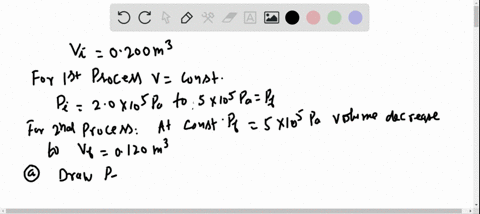 Vi = 0.200 m³
For 1st Process V = Const.
Pi = 2.0 × 10⁵ Pa to 5 × 10⁵ Pa = Pf
For 2nd Process: At Const. Pf = 5 × 10⁵ Pa volume decrease
to Vf = 0.120 m³
ⓐ Draw P–